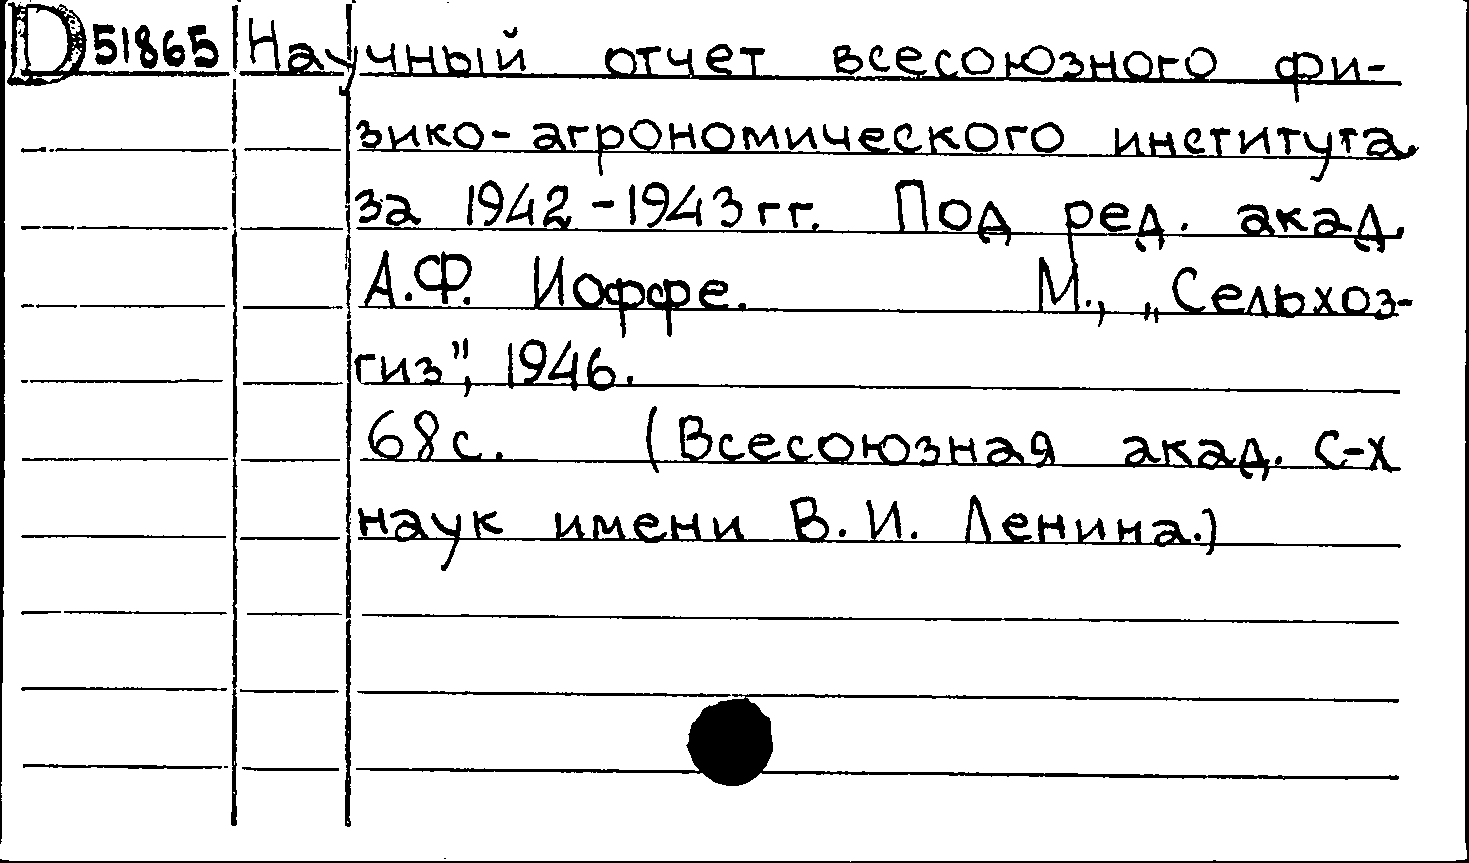 D 51865 Научный отчет всесоюзного фи-
зико-агрономического института
за 1942-1943 гг. Под ред. акад.
А.Ф. Иоффе. М., „Сельхоз-
гиз", 1946.
68 с. (Всесоюзная акад. с-х
наук имени В.И. Ленина.)